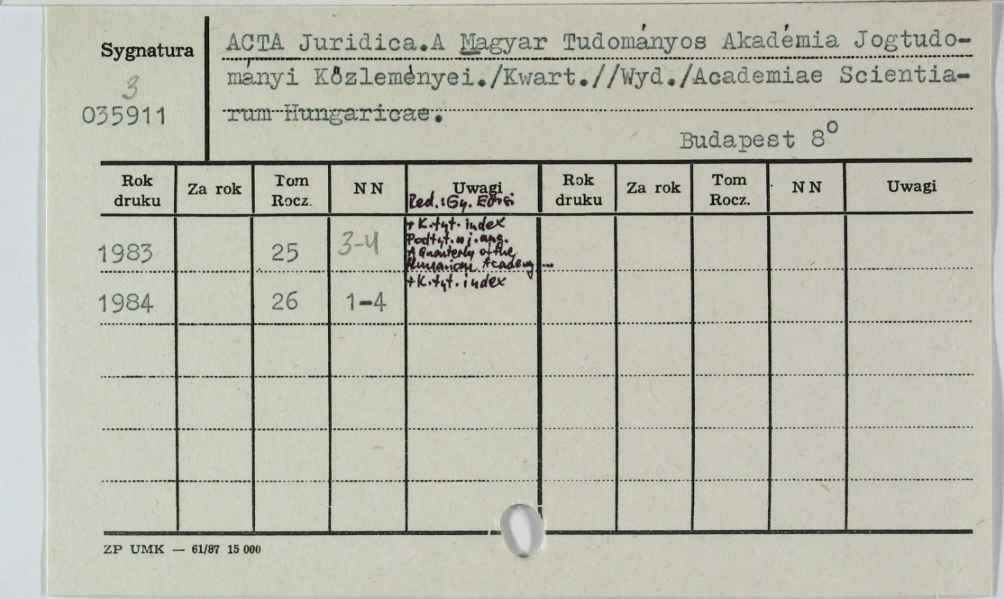 Sygnatura
3
035911
ACTA Juridica.A Magyar Tudományos Akadémia Jogtudo-
mányi Közleményei./Kwart.//Wyd./Academiae Scientia-
rum Hungaricae.
Budapest 8°
Rok druku Za rok Tom Rocz. N N Uwagi Rok druku Za rok Tom Rocz. N N Uwagi
Red.: Gy. Eörsi
1983 25 3-4 + K. tyt. index
Podtyt. w j. ang.
A Quarterly of the
Hungarian Academy...
1984 26 1-4 + K. tyt. index
ZP UMK — 61/87 15 000